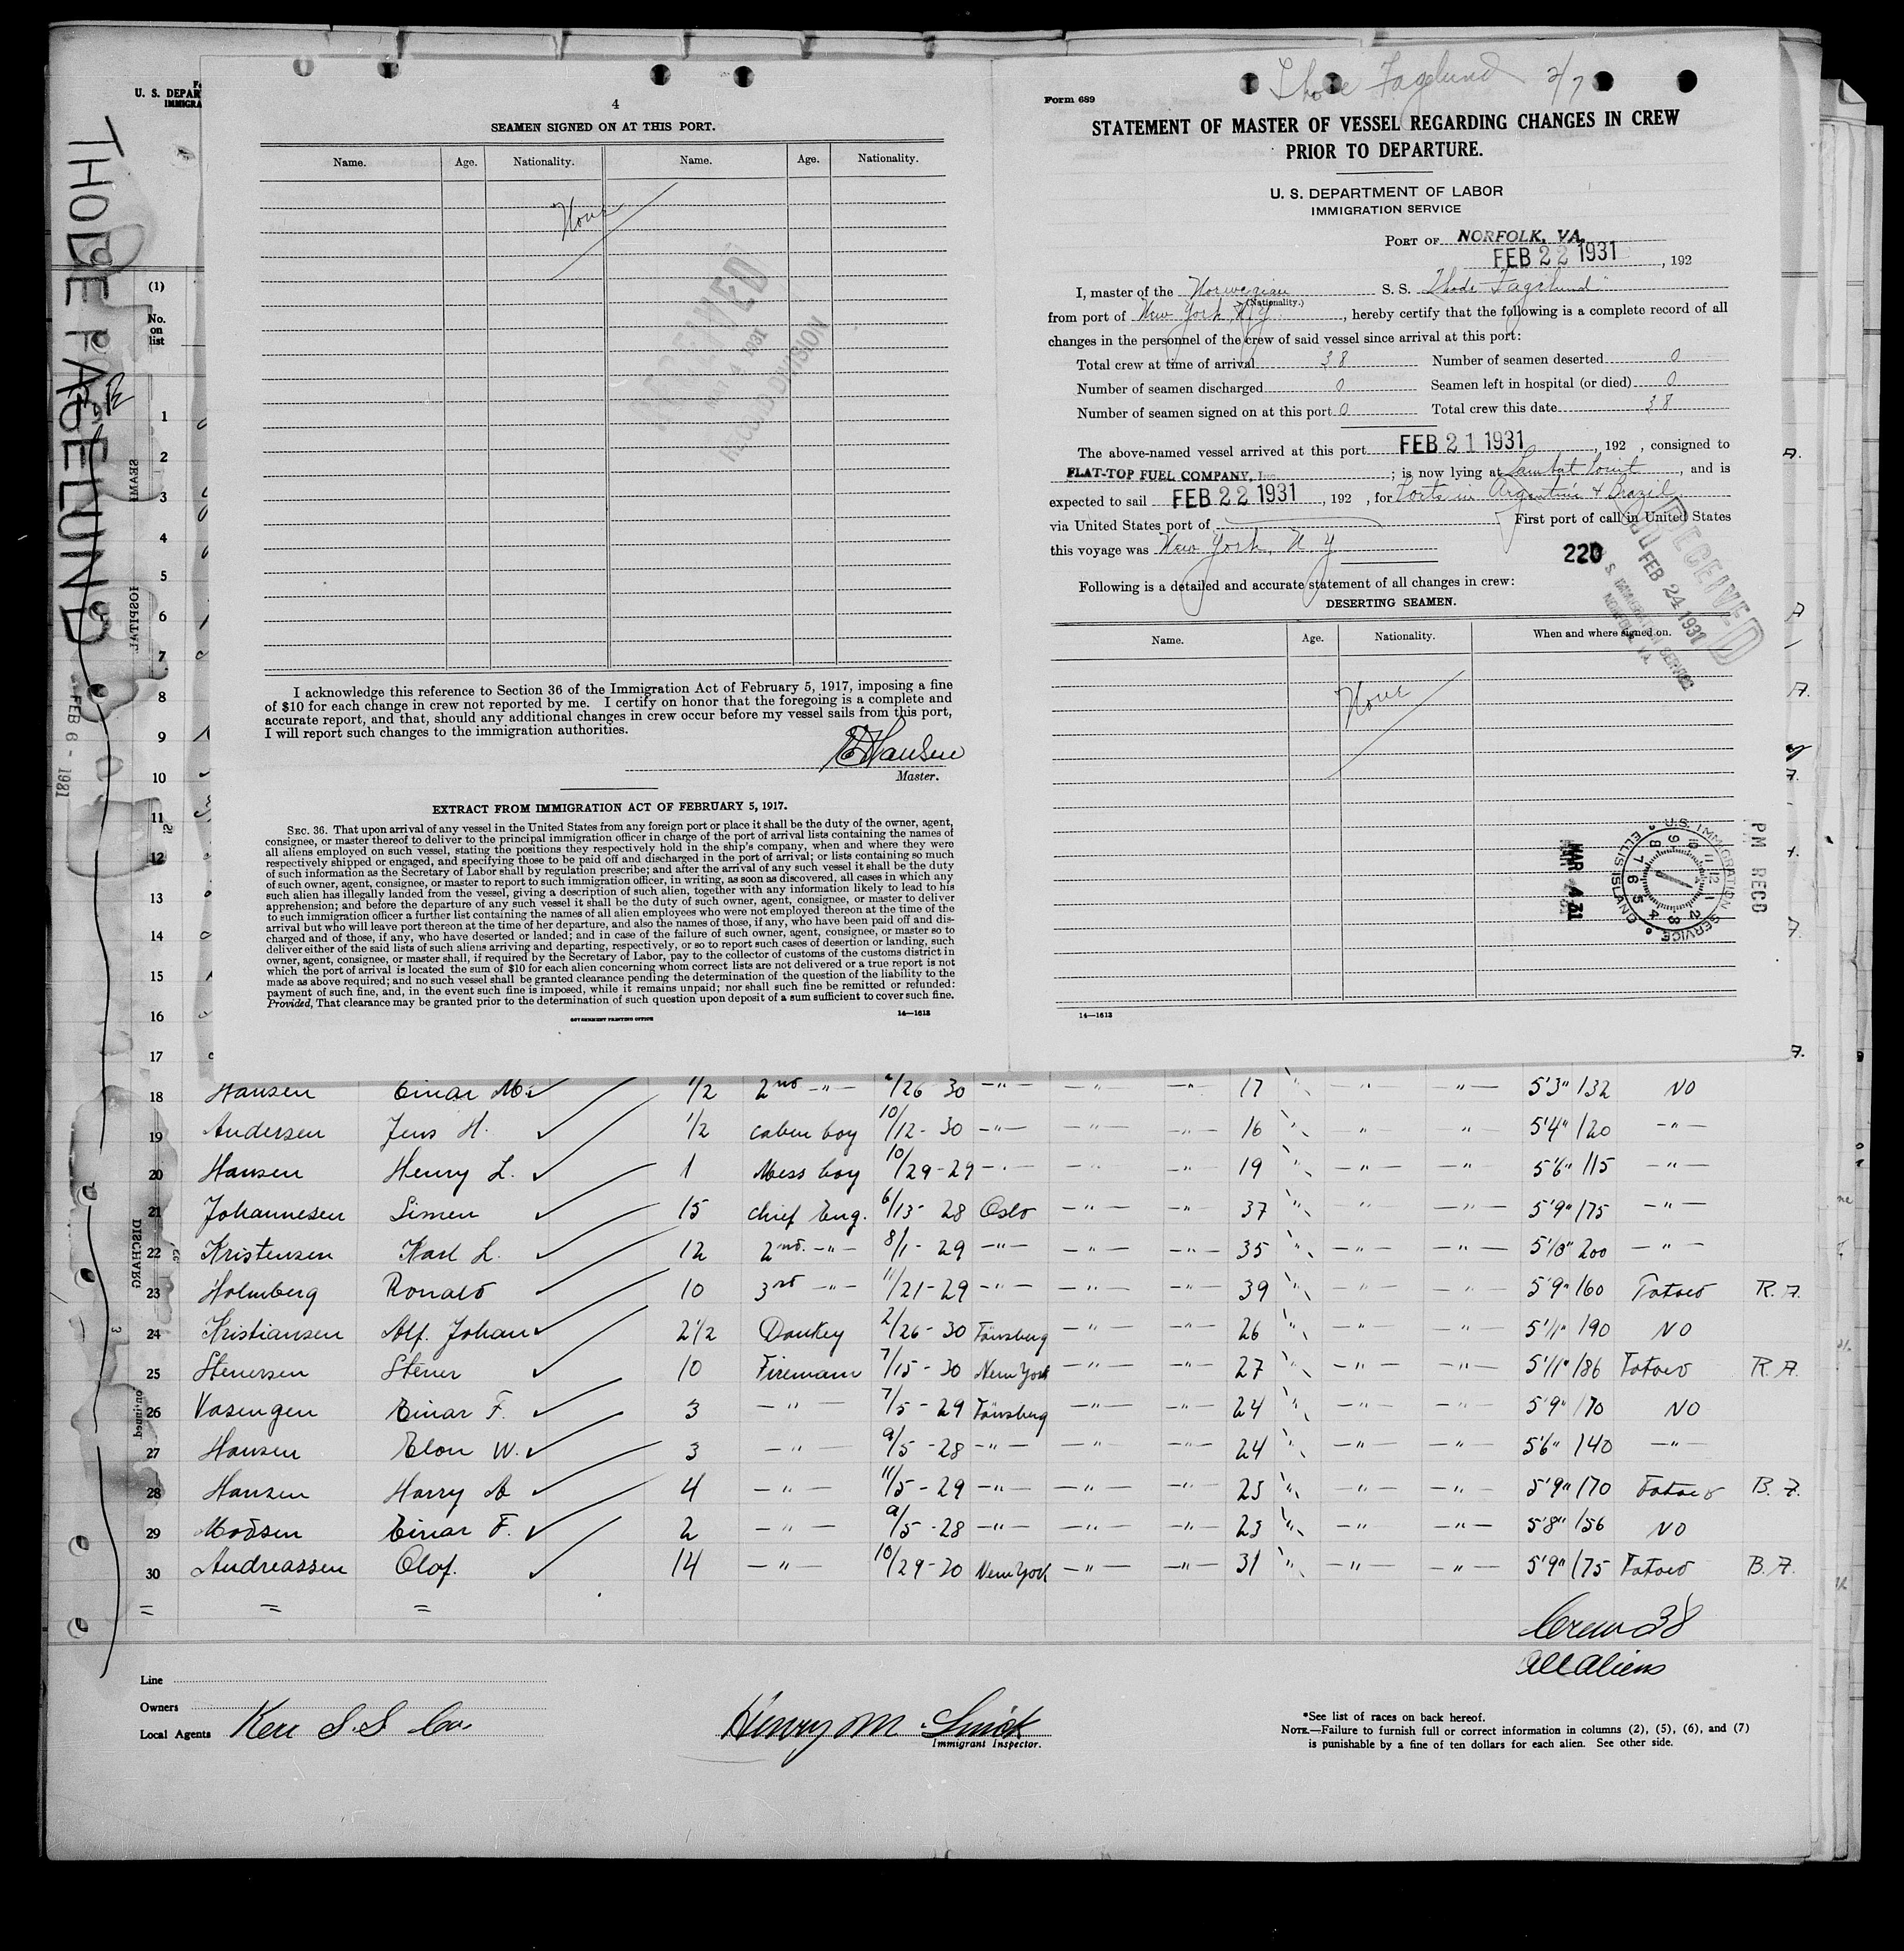 THODE FAGELUND
FEB 6 - 1931
U. S. DEPAR
IMMIGRA
(1)
No.
on
list
1
2
3
4
5
6
7
8
9
10
11
12
13
14
15
16
17
4
SEAMEN SIGNED ON AT THIS PORT.
Name. Age. Nationality. Name. Age. Nationality.
None
RECEIVED
MAR 4 1931
RECORD DIVISION
I acknowledge this reference to Section 36 of the Immigration Act of February 5, 1917, imposing a fine
of $10 for each change in crew not reported by me. I certify on honor that the foregoing is a complete and
accurate report, and that, should any additional changes in crew occur before my vessel sails from this port,
I will report such changes to the immigration authorities.
Hansen
Master.
EXTRACT FROM IMMIGRATION ACT OF FEBRUARY 5, 1917.
SEC. 36. That upon arrival of any vessel in the United States from any foreign port or place it shall be the duty of the owner, agent,
consignee, or master thereof to deliver to the principal immigration officer in charge of the port of arrival lists containing the names of
all aliens employed on such vessel, stating the positions they respectively hold in the ship's company, when and where they were
respectively shipped or engaged, and specifying those to be paid off and discharged in the port of arrival; or lists containing so much
of such information as the Secretary of Labor shall by regulation prescribe; and after the arrival of any such vessel it shall be the duty
of such owner, agent, consignee, or master to report to such immigration officer, in writing, as soon as discovered, all cases in which any
such alien has illegally landed from the vessel, giving a description of such alien, together with any information likely to lead to his
apprehension; and before the departure of any such vessel it shall be the duty of such owner, agent, consignee, or master to deliver
to such immigration officer a further list containing the names of all alien employees who were not employed thereon at the time of the
arrival but who will leave port thereon at the time of her departure, and also the names of those, if any, who have been paid off and dis-
charged and of those, if any, who have deserted or landed; and in case of the failure of such owner, agent, consignee, or master so to
deliver either of the said lists of such aliens arriving and departing, respectively, or so to report such cases of desertion or landing, such
owner, agent, consignee, or master shall, if required by the Secretary of Labor, pay to the collector of customs of the customs district in
which the port of arrival is located the sum of $10 for each alien concerning whom correct lists are not delivered or a true report is not
made as above required; and no such vessel shall be granted clearance pending the determination of the question of the liability to the
payment of such fine, and, in the event such fine is imposed, while it remains unpaid; nor shall such fine be remitted or refunded:
Provided, That clearance may be granted prior to the determination of such question upon deposit of a sum sufficient to cover such fine.
GOVERNMENT PRINTING OFFICE 14—1613
Thode Fagelund 2/7
Form 689
STATEMENT OF MASTER OF VESSEL REGARDING CHANGES IN CREW
PRIOR TO DEPARTURE.
U. S. DEPARTMENT OF LABOR
IMMIGRATION SERVICE
PORT OF NORFOLK, VA.
FEB 22 1931, 192
I, master of the Norwegian S. S. Thode Fagelund
(Nationality.)
from port of New York, N.Y., hereby certify that the following is a complete record of all
changes in the personnel of the crew of said vessel since arrival at this port:
Total crew at time of arrival 38 Number of seamen deserted 0
Number of seamen discharged 0 Seamen left in hospital (or died) 0
Number of seamen signed on at this port 0 Total crew this date 38
The above-named vessel arrived at this port FEB 21 1931, 192 , consigned to
FLAT-TOP FUEL COMPANY, Inc.; is now lying at Lambat Point, and is
expected to sail FEB 22 1931, 192 , for Ports in Argentine & Brazil
via United States port of First port of call in United States
this voyage was New York, N.Y
220
RECEIVED
FEB 24 1931
U. S. IMMIGRATION SERVICE
NORFOLK, VA.
Following is a detailed and accurate statement of all changes in crew:
DESERTING SEAMEN.
Name. Age. Nationality. When and where signed on.
None
MAR 4 31
U.S. IMMIGRATION SERVICE
ELLIS ISLAND
PM RECD
14—1613
18 Hansen Einar M. 1/2 2nd -"- /26 30 -"- -"- -"- 17 " -"- -"- 5'3" 132 NO
19 Andersen Jens H. 1/2 cabin boy 10/12-30 -"- -"- -"- 16 " -"- -"- 5'4" 120 -"-
20 Hansen Henry L. 1 Mess boy 10/29-29 -"- -"- -"- 19 " -"- -"- 5'6" 115 -"-
21 Johannesen Simen 15 chief Eng. 6/13-28 Oslo -"- -"- 37 " -"- -"- 5'9" 175 -"-
22 Kristensen Karl L. 12 2nd. -"- 8/1-29 -"- -"- -"- 35 " -"- -"- 5'10" 200 -"-
23 Holmberg Ronald 10 3rd -"- 11/21-29 -"- -"- -"- 39 " -"- -"- 5'9" 160 Tatoed R.A.
24 Kristiansen Alf. Johan 2 1/2 Donkey 2/26-30 Tönsberg -"- -"- 26 " -"- -"- 5'11" 190 NO
25 Stenersen Stener 10 Fireman 7/15-30 New York -"- -"- 27 " -"- -"- 5'11" 186 Tatoed R.A.
26 Vasengen Einar F. 3 -"- 7/5-29 Tönsberg -"- -"- 24 " -"- -"- 5'9" 170 NO
27 Hansen Elon W. 3 -"- 9/5-28 -"- -"- -"- 24 " -"- -"- 5'6" 140 -"-
28 Hansen Harry A 4 -"- 11/5-29 -"- -"- -"- 25 " -"- -"- 5'9" 170 Tatoed B.A.
29 Madsen Einar F. 2 -"- 9/5-28 -"- -"- -"- 23 " -"- -"- 5'8" 156 NO
30 Andreassen Olaf. 14 -"- 10/29-30 New York -"- -"- 31 " -"- -"- 5'9" 175 Tatoed B.A.
= = =
Crew 38
All aliens
Line
Owners
Local Agents Kerr S.S Co.
Henry M.
Immigrant Inspector.
*See list of races on back hereof.
NOTE.—Failure to furnish full or correct information in columns (2), (5), (6), and (7)
is punishable by a fine of ten dollars for each alien. See other side.